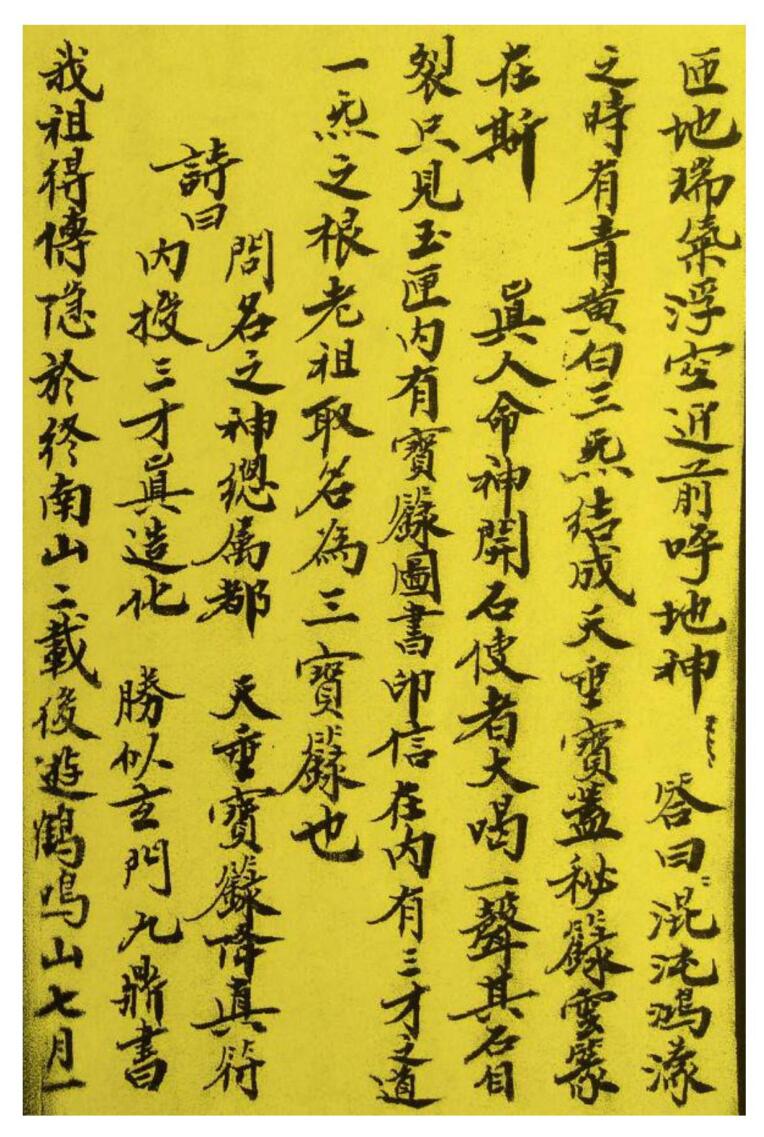 匝地瑞氣浮空近前呼地神〻答曰混沌鴻濛
之時有青黃白三炁結成天垂寶蓋秘籙雲篆
在斯 真人命神開石使者大喝一聲其石自
裂只見玉匣内有寶籙圖書印信在内有三才之道
一炁之根老祖取名為三寶籙也
詩曰
問名之神總属都 天垂寶籙降真符
内投三才真造化 勝似玄門九鼎書
我祖得傳隐於终南山二載後遊鶴鳴山七月一